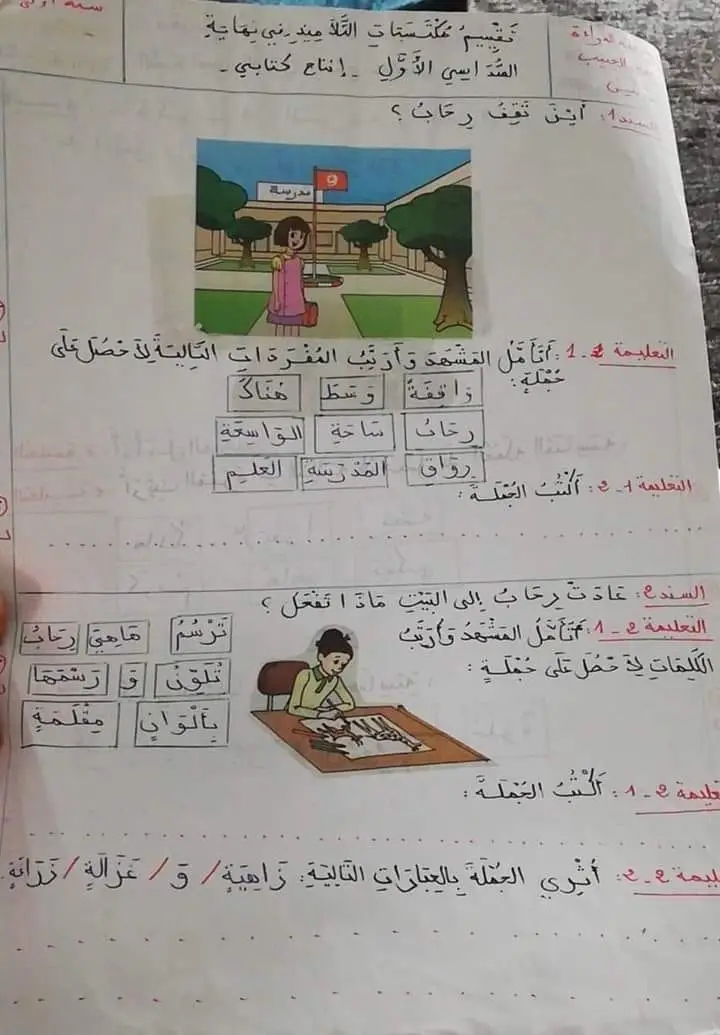 سنة أولى
تَقْيِيمُ مُكْتَسَبَاتِ التَّلَامِيذِ فِي نِهَايَةِ
السُّدَاسِي الأَوَّلِ - إنتاج كتابي -
السند 1: أَيْنَ تَقِفُ رِحَابُ ؟
مدرسة
التعليمة 1-1: أَتَأَمَّلُ المَشْهَدَ وَأُرَتِّبُ المُفْرَدَاتِ التَّالِيَةَ لِأَحْصُلَ عَلَى
جُمْلَةٍ:
وَاقِفَةٌ وَسَطَ هُنَاكَ
رِحَابُ سَاحَةِ الوَاسِعَةِ
رِوَاقِ المَدْرَسَةِ العَلَمِ
التعليمة 1-2: أَكْتُبُ الجُمْلَةَ:
السند 2: عَادَتْ رِحَابُ إِلَى البَيْتِ مَاذَا تَفْعَلُ ؟
التعليمة 2-1: أَتَأَمَّلُ المَشْهَدَ وَأُرَتِّبُ
الكَلِمَاتِ لِأَحْصُلَ عَلَى جُمْلَةٍ:
تَرْسُمُ هَاهِيَ رِحَابُ
تُلَوِّنُ وَ رَسْمَهَا
بِأَلْوَانٍ مِقْلَمَةٍ
تعليمة 2-1: أَكْتُبُ الجُمْلَةَ:
ليمة 2-2: أُثْرِي الجُمْلَةَ بِالعِبَارَاتِ التَّالِيَةِ: زَاهِيَةٍ / وَ / غَزَالَةٍ / زَرَافَةٍ.